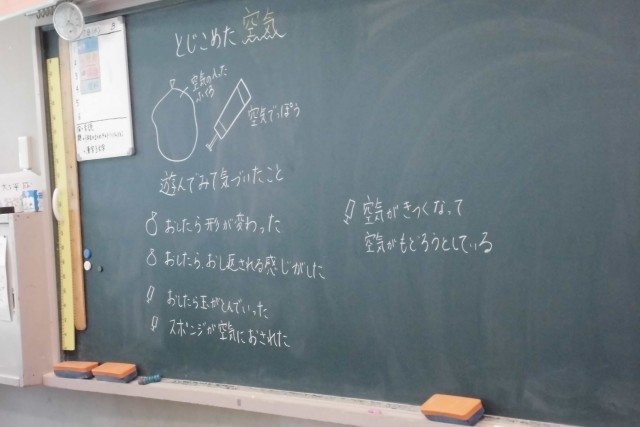 とじこめた 空気
空気の入った
ふくろ
空気でっぽう
遊んでみて気づいたこと
おしたら形が変わった
おしたら、おし返される感じがした
おしたら玉がとんでいった
スポンジが空気におされた
空気がきつくなって
空気がもどろうとしている